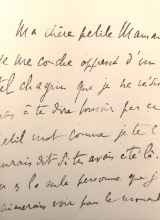 Ma chère petite Maman
je me couche oppressé d'un
tel chagrin que je ne résiste
pas à te dire bonsoir par ce
petit mot comme je te l'
aurais dit si tu avais été là.
Tu es la seule personne que j'
aimerais voir par le moment